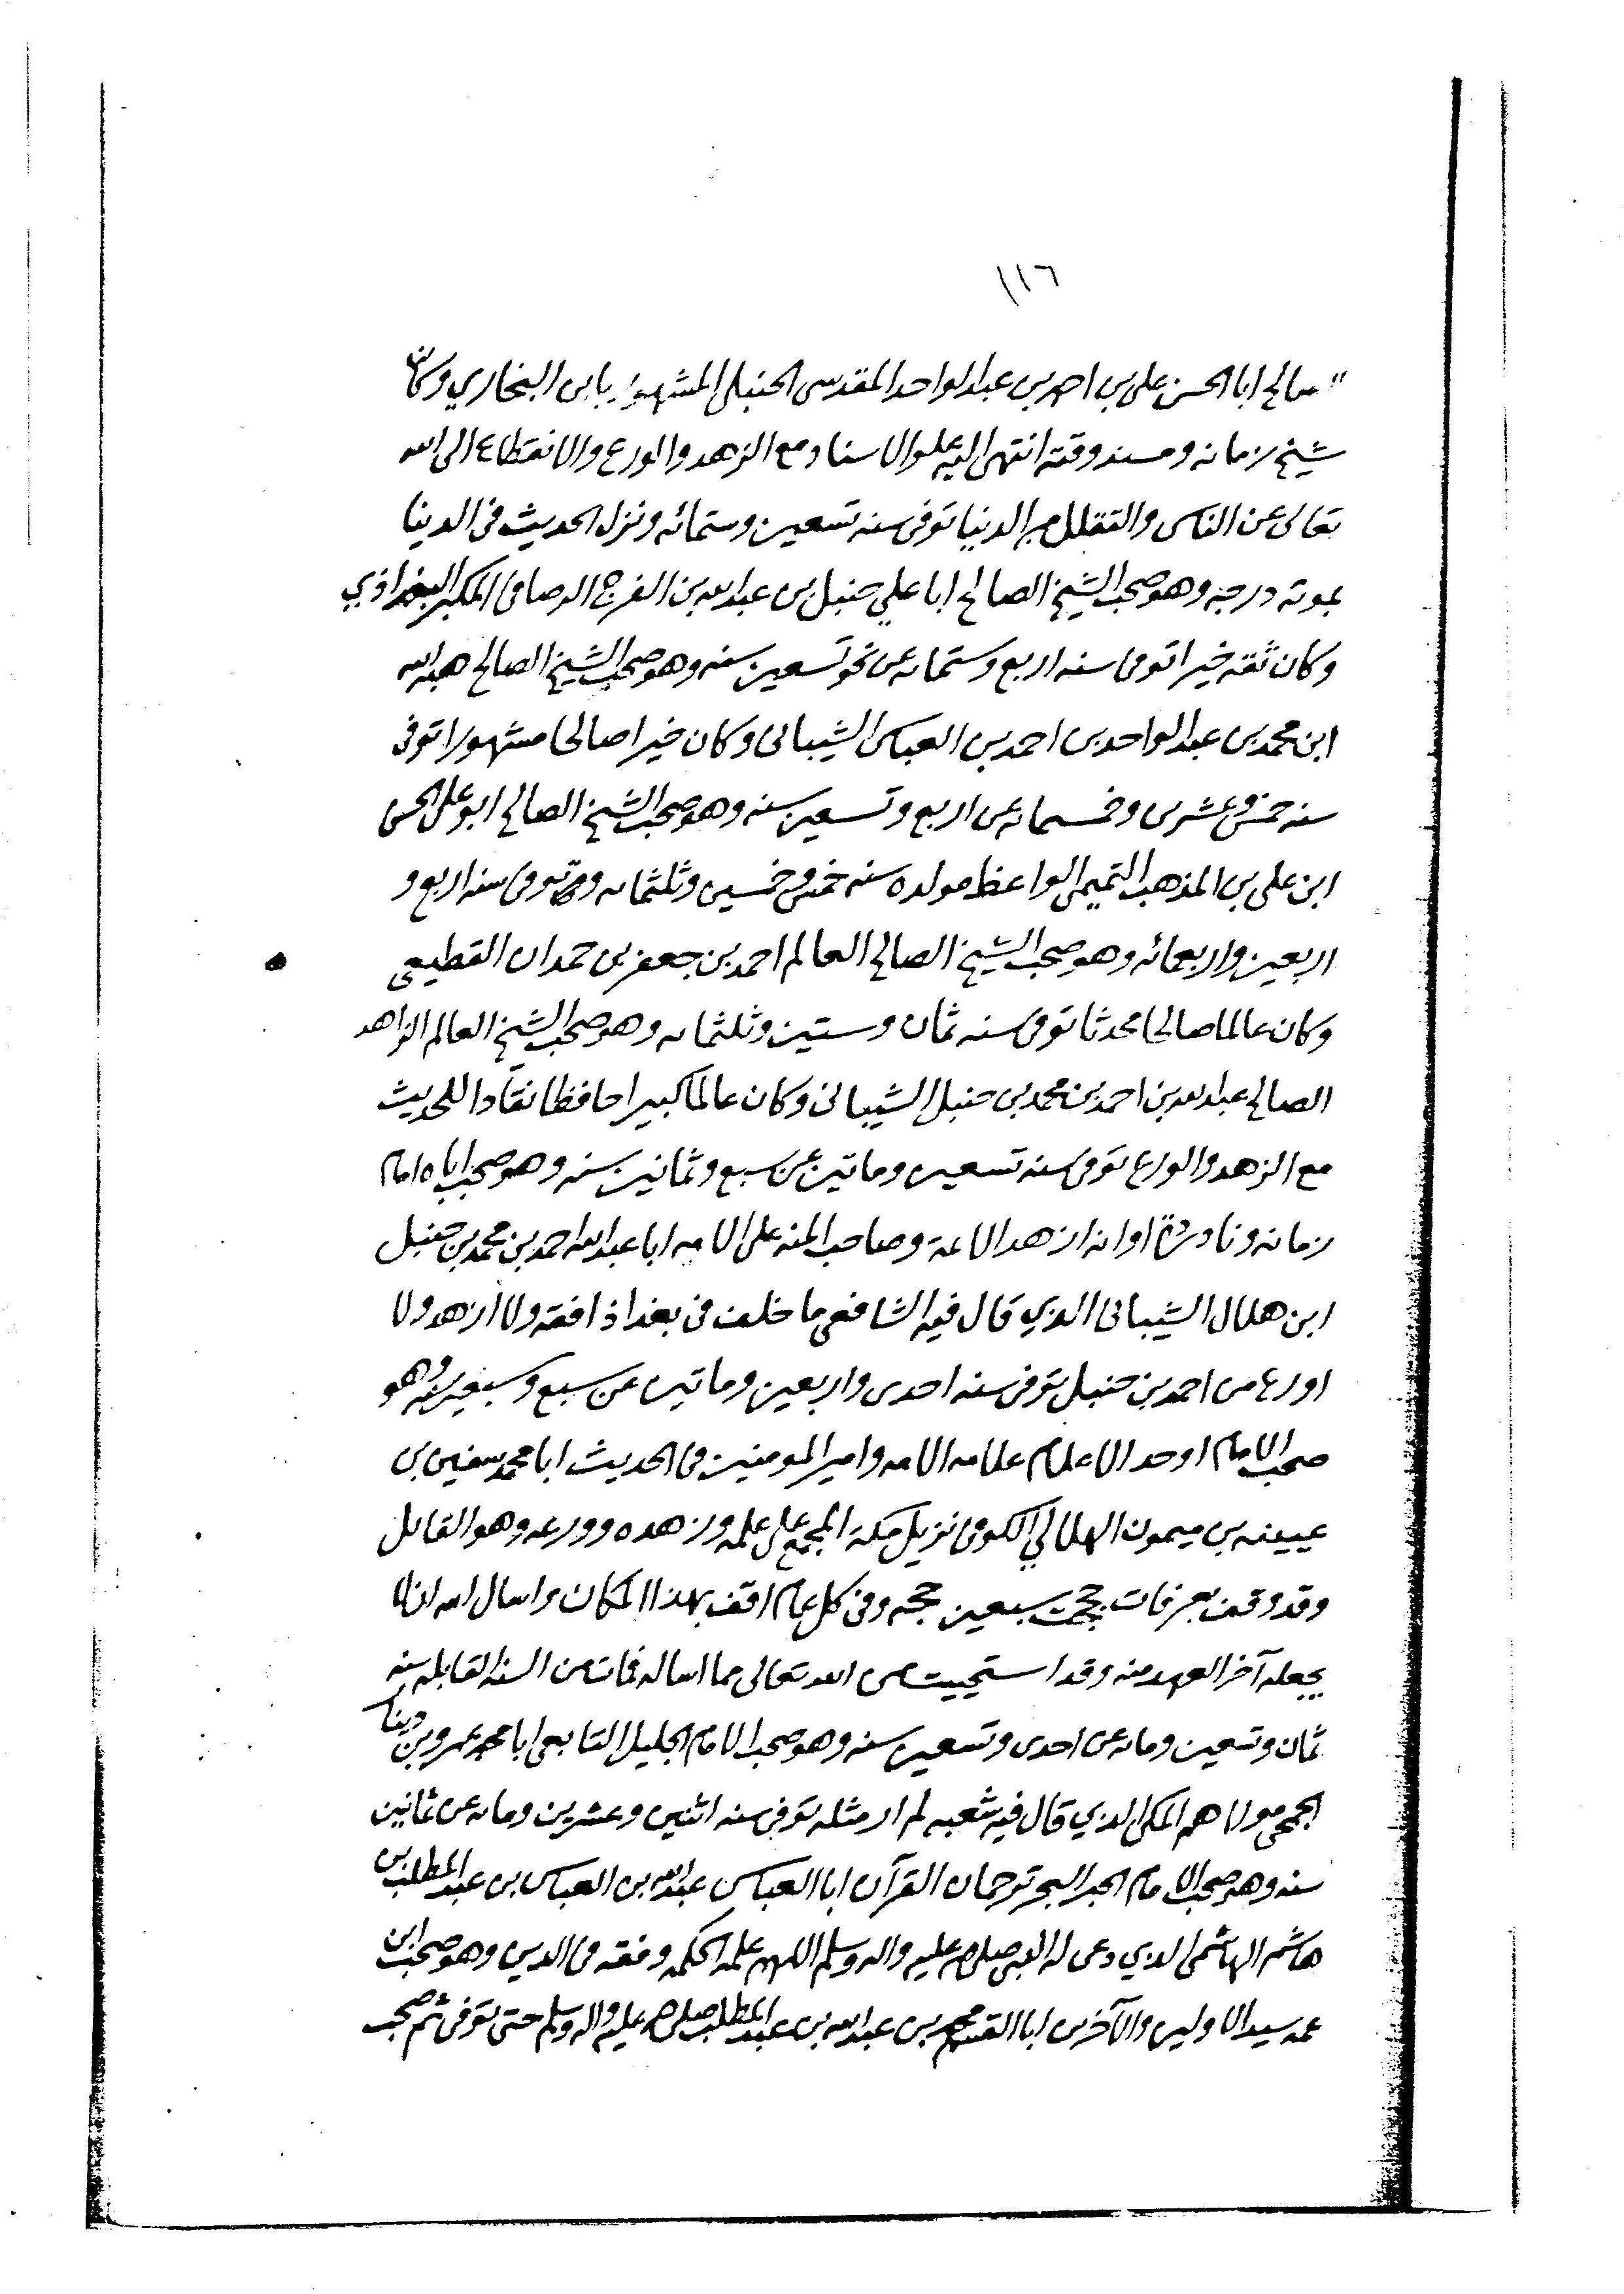 ١١٦
الصالح ابا الحسن على بن احمد بن عبد الواحد المقدسى الحنبلى المشهور بابن البخاري وكان
شيخ زمانه ومسند وقته انتهى اليه علو الاسناد مع الزهد والورع والانقطاع الى الله
تعالى عن الناس والتقلل من الدنيا توفى سنه تسعين وستمائه ونزل الحديث فى الدنيا
بموته درجه وهو صحب الشيخ الصالح ابا علي حنبل بن عبد الله بن الفرج الرصافى المكبر البغداذي
وكان ثقه خيرا توفى سنه اربع وستمايه عن نحو تسعين سنه وهو صحب الشيخ الصالح هبه الله
ابن محمد بن عبد الواحد بن احمد بن العباس الشيبانى وكان خيرا صالحا مشهورا توفى
سنه خمس وعشرين وخمسمايه عن اربع وتسعين سنه وهو صحب الشيخ الصالح ابو على الحسن
ابن على بن المذهب التميمى الواعظ مولده سنه خمس وخمسين وثلثمايه وتوفى سنه اربع و
اربعين واربعمائه وهو صحب الشيخ الصالح العالم احمد بن جعفر بن حمدان القطيعى
وكان عالما صالحا محدثا توفى سنه ثمان وستين وثلثمايه وهو صحب الشيخ العالم الزاهد
الصالح عبد الله بن احمد بن محمد بن حنبل الشيبانى وكان عالما كبيرا حافظا نقادا للحديث
مع الزهد والورع توفى سنه تسعين وماتين عن سبع وثمانين سنه وهو صحب اباه امام
زمانه ونادرة اوانه ازهد الائمة وصاحب المنه على الامه ابا عبد الله احمد بن محمد بن حنبل
ابن هلال الشيبانى الذي قال فيه الشافعى ما خلفت فى بغداذ افقه ولا ازهد ولا
اورع من احمد بن حنبل توفى سنه احدى واربعين وماتين عن سبع وسبعين سنه وهو
صحب الامام اوحد الاعلام علامه الامه وامير المومنين فى الحديث ابا محمد سفين بن
عيينه بن ميمون الهلالي الكوفى نزيل مكة المجمع على علمه وزهده وورعه وهو القايل
وقد وقف بعرفات حججت سبعين حجه وفى كل عام اقف بهذا المكان واسال الله ان لا
يجعله آخر العهد منه وقد استحييت من الله تعالى مما اساله فمات من السنه القابله سنه
ثمان وتسعين ومايه عن احدى وتسعين سنه وهو صحب الامام الجليل التابعى ابا محمد عمرو بن دينار
الجمحى مولاهم المكى الذي قال فيه شعبه لم ار مثله توفى سنه اثنين وعشرين ومايه عن ثمانين
سنه وهو صحب الامام الحبر البحر ترجمان القرآن ابا العباس عبد الله بن العباس بن عبد المطلب بن
هاشم الهاشمى الذي دعى له النبى صلى الله عليه واله وسلم اللهم علمه الحكمه وفقه فى الدين وهو صحب ابن
عمه سيد الاولين والآخرين ابا القسم محمد بن عبد الله بن عبد المطلب صلى الله عليه واله وسلم حتى توفى ثم صحب